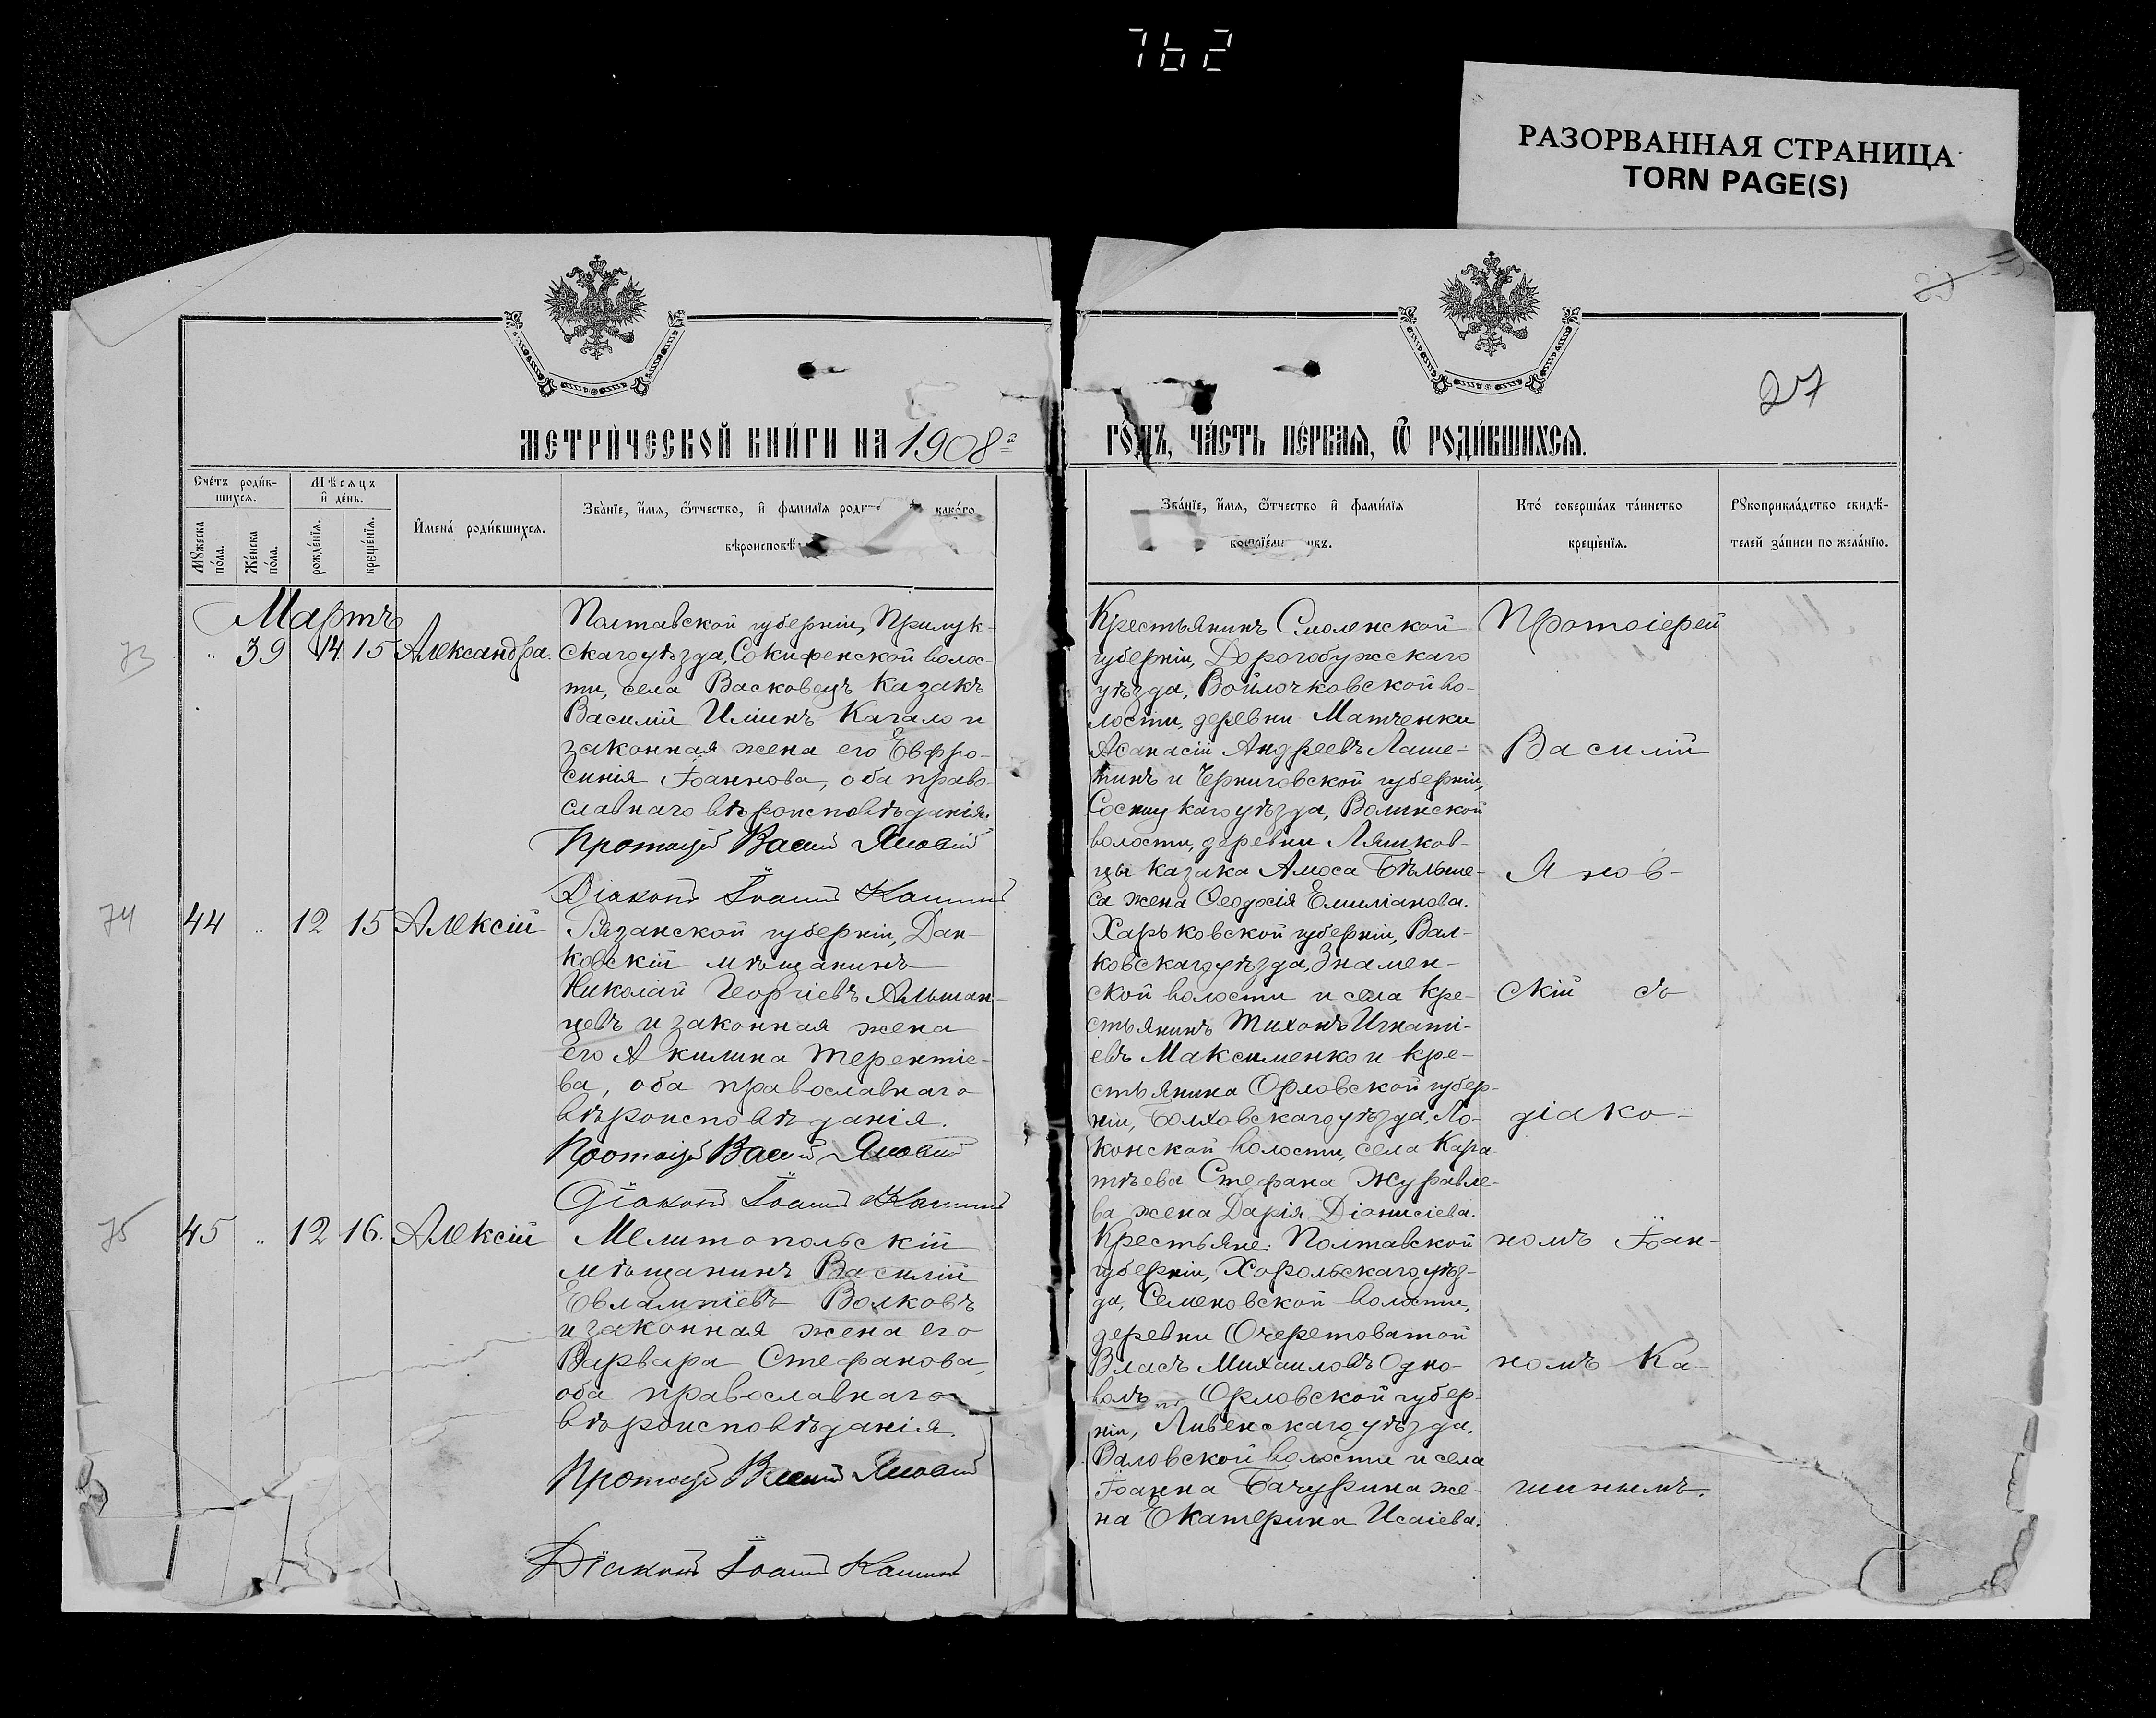 762
РАЗОРВАННАЯ СТРАНИЦА
TORN PAGE(S)
27
МЕТРИЧЕСКОЙ КНИГИ НА 1908й
ГОДЪ, ЧАСТЬ ПЕРВАЯ, Ѿ РОДИВШИХСЯ.
Счетъ родив-
шихся.
Мѣсяцъ
и день.
Мужеска
пола.
Женска
пола.
рожденія.
крещенія.
Имена родившихся.
Званіе, имя, ѿчество, и фамилія роди какого
вѣроисповѣ
Званіе, имя, ѿчество и фамилія
Кто совершалъ таинство
крещенія.
Рукоприкладство свидѣ-
телей записи по желанію.
Мартъ
73
" 39 14 15 Александра.
Полтавской губерніи, Прилук-
скаго уѣзда, Сокиренской волос-
ти, села Васковецъ казакъ
Василій Илiинъ Качало и
законная жена его Евфро-
синія Іоаннова, оба право-
славнаго вѣроисповѣданія.
Протоіерей Василій Яновскій
Діаконъ Іоаннъ Кашинъ
Крестьянинъ Смоленской
губерніи, Дорогобужскаго
уѣзда, Войлочковской во-
лости, деревни Матченки
Аѳанасій Андреевъ Лаше-
тинъ и Черниговской губерніи,
Сосницкаго уѣзда, Волинской
волости, деревни Ляшков-
цы казака Амоса Бѣльше-
са жена Ѳеодосія Емиліанова.
74
44 " 12 15 Алексій
Рязанской губерніи, Дан-
ковскій мѣщанинъ
Николай Георгіевъ Альшан-
цевъ и законная жена
его Акилина Терентіе-
ва, оба православнаго
вѣроисповѣданія.
Протоіерей Василій Яновскій
Діаконъ Іоаннъ Кашинъ
Харьковской губерніи, Вал-
ковскаго уѣзда, Знамен-
ской волости и села кре-
стьянинъ Тихонъ Игнаті-
евъ Максименко и кре-
стьянина Орловской губер-
ніи, Болховскаго уѣзда, Ло-
конской волости, села Кара-
тѣева Стефана Журавле-
ва жена Дарія Діонисіева.
75
45 " 12 16. Алексій
Мелитопольскій
мѣщанинъ Василій
Евлампіевъ Волковъ
и законная жена его
Варвара Стефанова,
оба православнаго
вѣроисповѣданія.
Протоіерей Василій Яновскій
Діаконъ Іоаннъ Кашинъ
Крестьяне: Полтавской
губерніи, Хорольскаго уѣз-
да, Семеновской волости,
деревни Очеретоватой
Власъ Михаиловъ Одно-
волъ и Орловской губер-
ніи, Ливенскаго уѣзда,
Валовской волости и села
Іоанна Бачурина же-
на Екатерина Исаіева.
Протоіерей
Василій
Янов-
скій съ
діако-
номъ Іоан-
номъ Ка-
шинымъ.